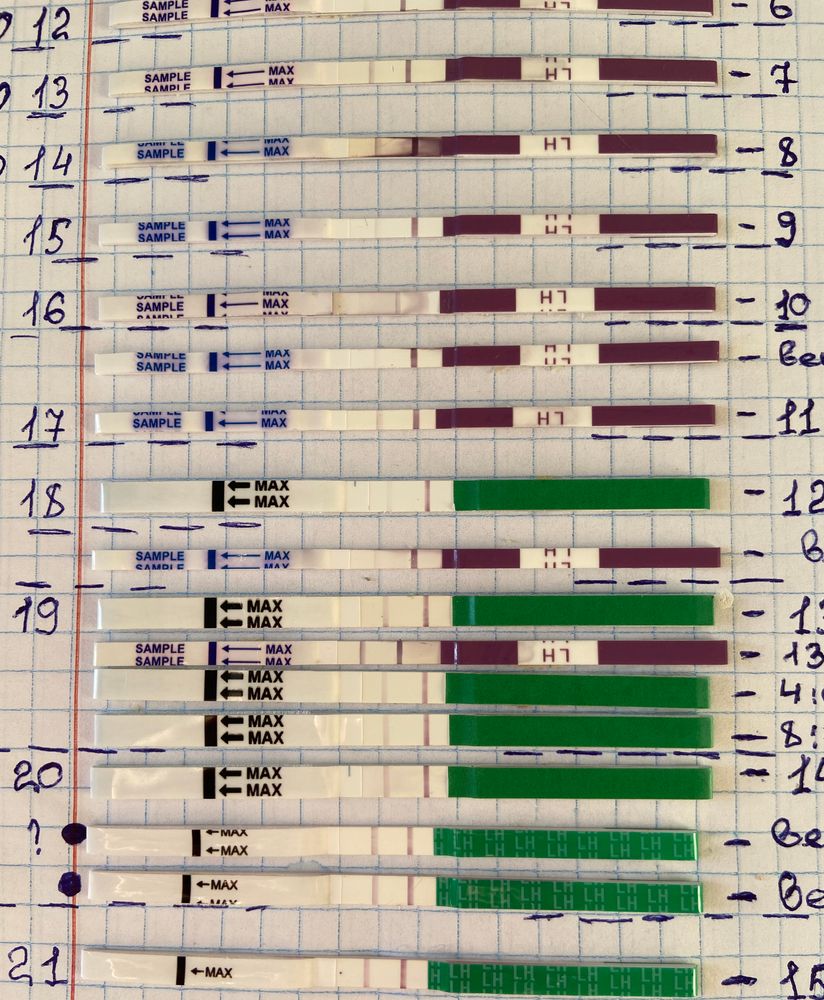 SAMPLE
12 SAMPLE - 6
SAMPLE MAX LH - 7
13 SAMPLE MAX LH
SAMPLE MAX
14 SAMPLE MAX LH - 8
SAMPLE MAX LH
15 SAMPLE MAX LH - 9
SAMPLE MAX
16 SAMPLE MAX LH - 10
SAMPLE
SAMPLE MAX LH
SAMPLE MAX LH -
SAMPLE MAX
17 SAMPLE MAX LH - 11
MAX
18 MAX - 12
SAMPLE MAX LH
SAMPLE MAX LH -
MAX
19 MAX -
SAMPLE MAX LH - 13
SAMPLE MAX
MAX
MAX - 4:
MAX
MAX - 8:
MAX
20 MAX - 14
? MAX
MAX LH LH LH LH LH LH -
MAX LH LH LH LH LH LH -
MAX
21 MAX LH LH LH LH LH LH - 15